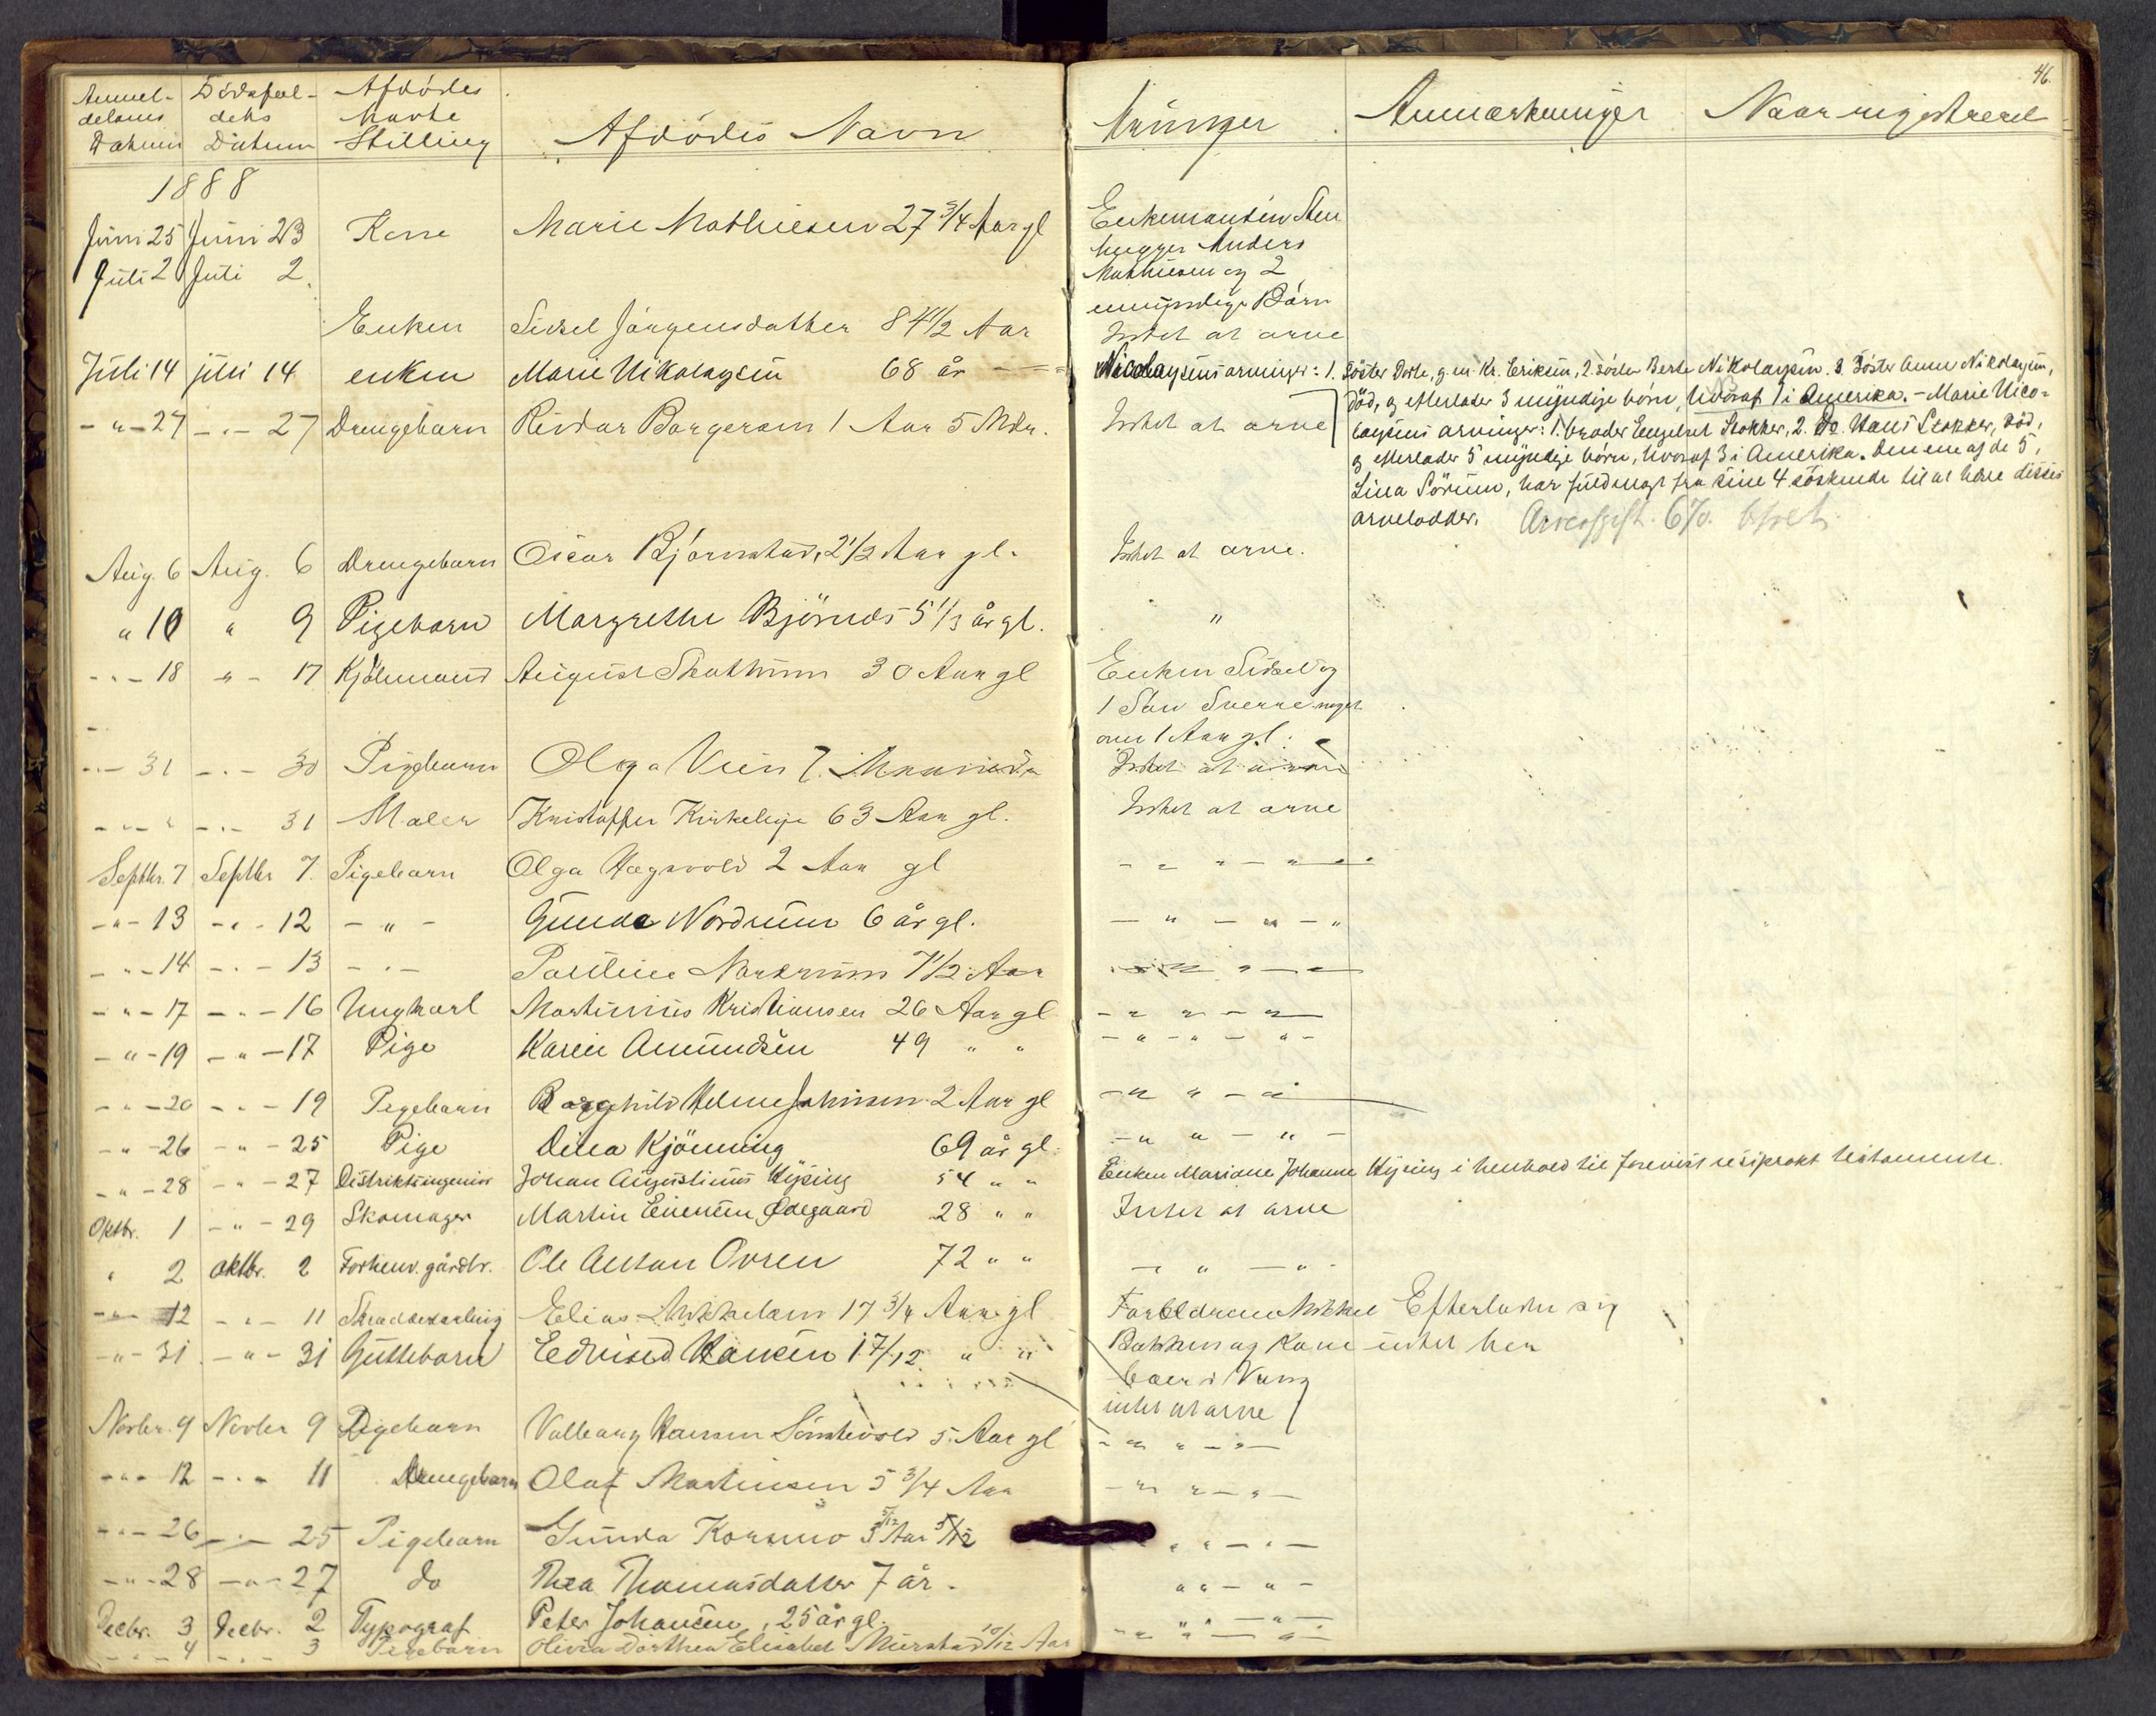 46.
Anmel- Dödsfal- Afdödes
delens dets Navn
Datum Datum Stilling Afdödes Navn Arvinger Anmærkninger Naar registreret
1888
Juni 25 Juni 23 Kone Marie Mathiesen 27 3/4 Aar gl Enkemanden Sten
hugger Anders
Juli 2 Juli 2. Mathiesen og 2
umyndige Börn
Enken Sidsel Jörgensdatter 84 1/2 Aar Intet at arve
Juli 14 juli 14 enken Marie Nikolaysen 68 år Nicolaysens arvinger: 1. Söster Dorte, g. m. Kr. Eriksen, 2. söster Berte Nikolaysen. 3. Söster Anne Nikolaysen,
död, og efterlader 3 myndige börn, hvoraf 1 i Amerika. - Marie Nico-
- " - 27 - " - 27 Drengebarn Reidar Borgersen 1 Aar 5 Mdr. Intet at arve
laysens arvinger: 1. broder Engebret Stokker, 2. Do. Hans Stokker, död,
og efterlader 5 myndige börn, hvoraf 3 i Amerika. Den ene af de 5,
Lina Sörum, har fuldmagt fra sine 4 söskende til at hæve disses
arvelodder. Arveafgift 6%
Aug. 6 Aug. 6 Drengebarn Oscar Björnstad, 2 1/2 Aar gl. Intet at arve.
" 10 " 9 Pigebarn Margrethe Björnds 5 1/3 år gl. "
- " - 18 - " - 17 August 30 Aar gl Enken Sidsel og
1 Sön Sverre noget
over 1 Aar gl.
- " - 31 - " - 30 Pigebarn Olga Vien 7 Maaneder Intet at arve
- " - " - " - 31 Maler Kristoffer Kirkelige 63 Aar gl. Intet at arve
Septbr. 7 Septbr 7. Pigebarn Olga Hagavold 2 Aar gl - " - " -
- " - 13 - " - 12 - " - Gunda Nordrum 6 år gl. - " - " - "
- " - 14 - " - 13 - " - Pauline 7 1/2 Aar - " - " -
- " - 17 - " - 16 Ungkarl Martinius Kristiansen 26 Aar gl - " - " -
- " - 19 - " - 17 Pige Karen Amundsen 49 " " - " - " - " -
- " - 20 - " - 19 Pigebarn Borghild Helene Johnsen 2 Aar gl - " " - "
- " - 26 - " - 25 Pige Dina Kjönning 69 år gl. - " " - " -
- " - 28 - " - 27 Distriktsingeniör Johan Augustinus Hysing 54 " " Enken Mariane Johanne Hysing i henhold til forevist resiprokt testamente.
Oktbr. 1 - " - 29 Skomager Martin Evensen Ødegaard 28 " " Intet at arve
" 2 oktbr. 2 Forhenv. gårdbr. Ole Anton Ovren 72 " " - " " - " -
- " - 12 - " - 11 Skrædderlærling Elias Mikkelsen 17 3/4 Aar gl Forældrene Mikkel Efterlader sig
- " - 31 - " - 31 Guttebarn Edvard Hansen 17/12 " " Bakken og Kone intet her
boer i Vang
intet at arve
Novbr. 9 Novbr 9 Pigebarn Valborg Hansen 5 Aar gl - " " - " -
- " - 12 - " - 11 Drengebarn Olaf Martinsen 5 3/4 Aar - " " - " -
- " - 26 - " - 25 Pigebarn Gunda Korsmo 3 5/12 Aar " " - " -
- " - 28 - " - 27 do Thea Thomasdatter 7 år. " " - " -
Decbr. 3 Decbr. 2 Typograf Peter Johansen, 25 år gl. " " - " -
- " - 4 - " - 3 Pigebarn Olivia Dorthea Elisabet Murstad 10/12 Aar - " " - " -